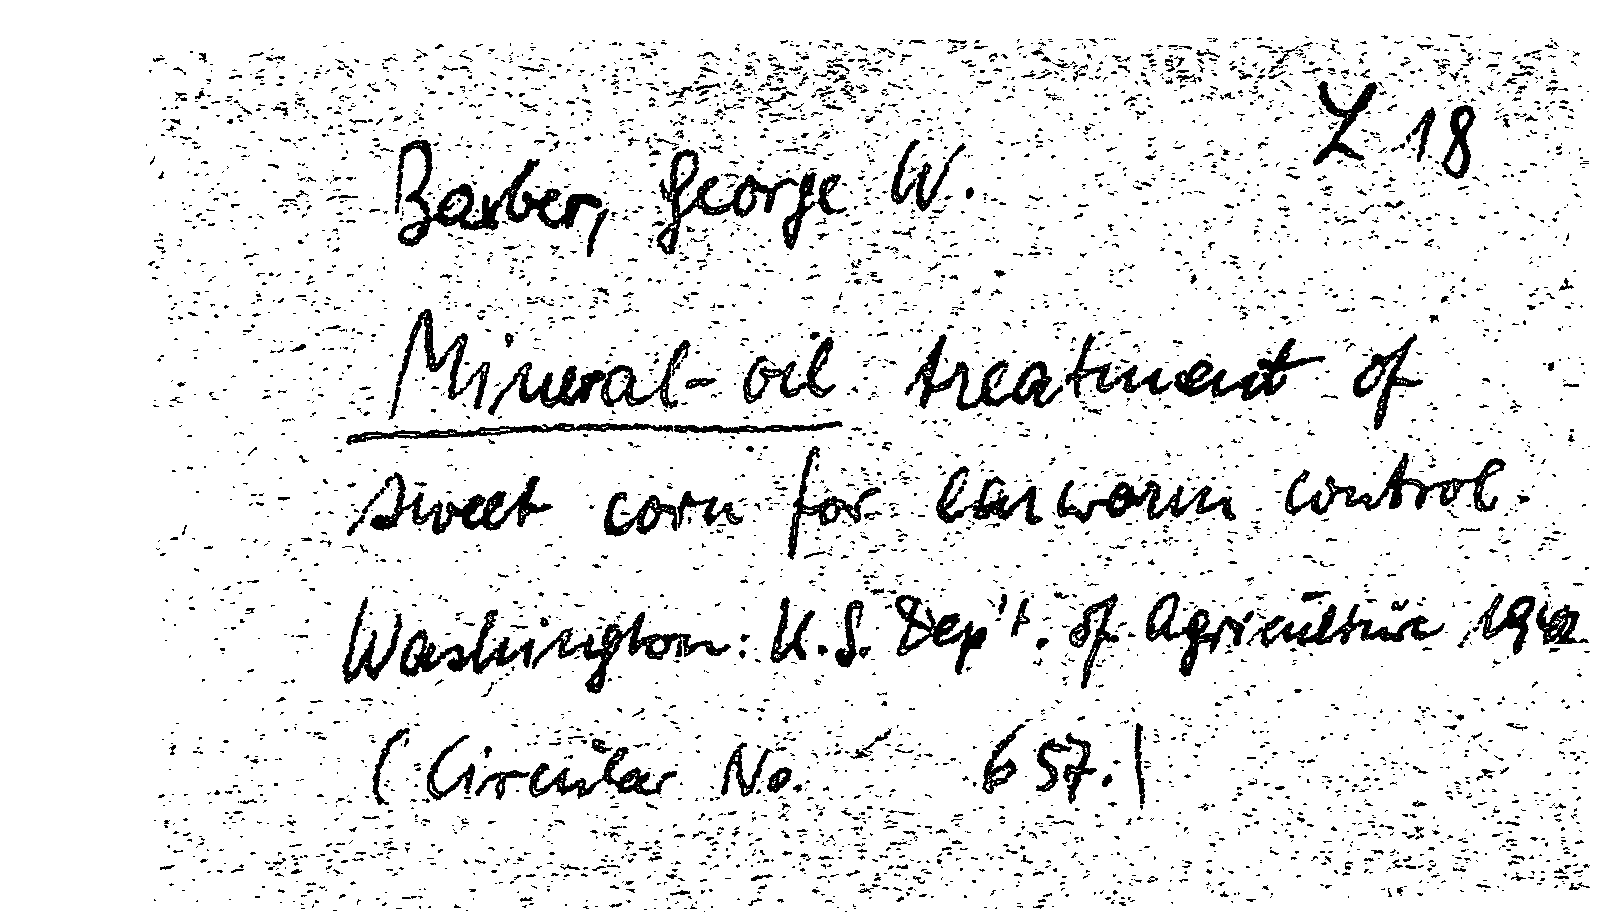 Z 18
Barber, George W.
Mineral-oil treatment of
sweet corn for earworm control.
Washington: U.S. Dep't. of Agriculture 1942
(Circular No. 657.)